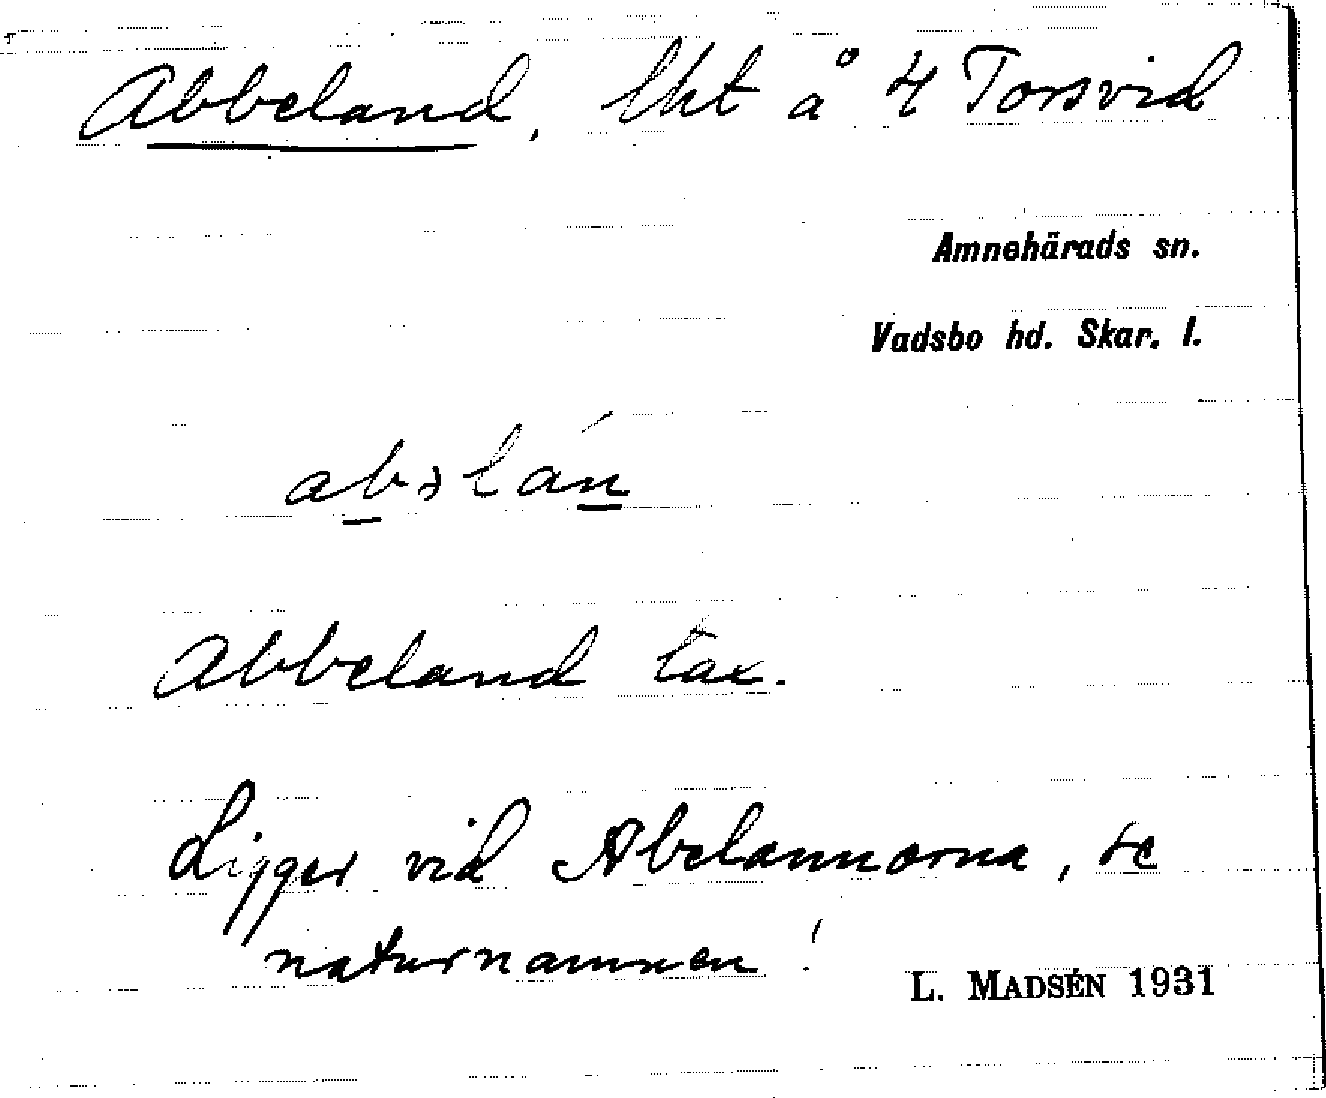 Abbeland, lht å 4 Torsvid
Amnehärads sn.
Vadsbo hd. Skar. l.
abəlán
Abbeland tax.
Ligger vid Abelannorna, se
naturnamnen!
L. MADSÉN 1931